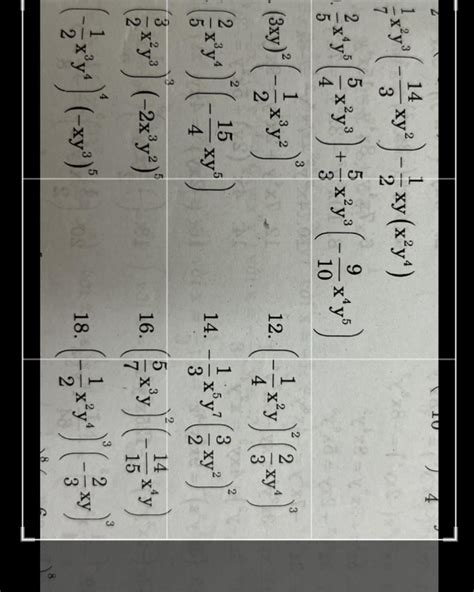 1/7 x²y³ (−14/3 xy²) − 1/2 xy(x²y⁴)
2/5 x⁴y⁵ (5/4 x²y³) + 5/3 x²y³ (−9/10 x⁴y⁵)
(3xy)² (−1/2 x³y²)³
12. (−1/4 x²y)² (2/3 xy⁴)³
(2/5 x³y⁴)² (−15/4 xy⁵)
14. −1/3 x⁵y⁷ (3/2 xy²)²
(3/2 x²y³)³ (−2x³y²)⁵
16. (5/7 x³y)² (−14/15 x⁴y)
(−1/2 x³y⁴)⁴ (−xy³)⁵
18. (−1/2 x²y⁴)³ (−2/3 xy)³